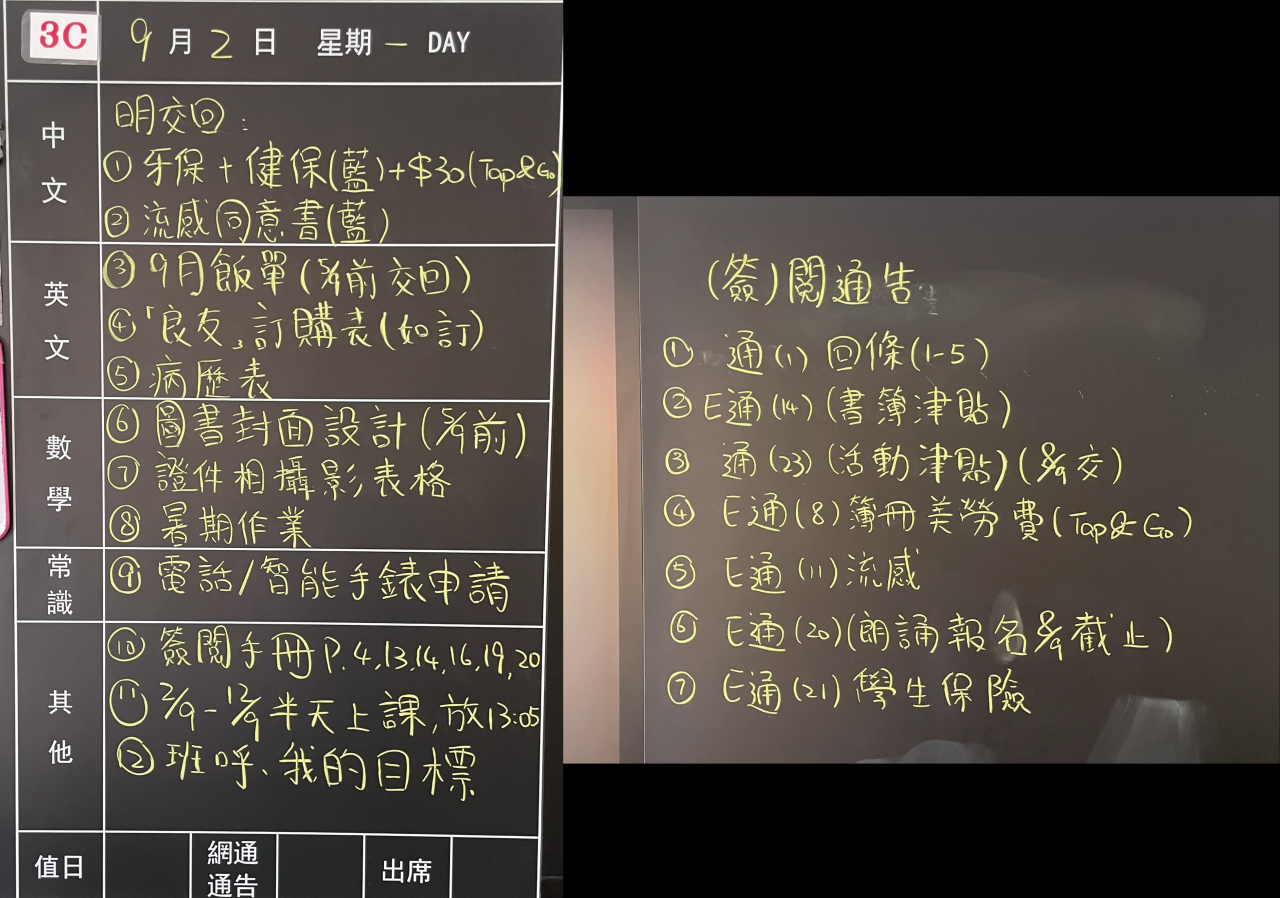 3C 9月2日 星期一 DAY
中文
明交回：
① 牙保+健保(藍)+$30(Tap&Go)
② 流感同意書(藍)
英文
③ 9月飯單(5/9前交回)
④「良友」訂購表(如訂)
⑤ 病歷表
數學
⑥ 圖書封面設計(5/9前)
⑦ 證件相攝影表格
⑧ 暑期作業
常識
⑨ 電話/智能手錶申請
其他
⑩ 簽閱手冊P.4,13,14,16,19,20
⑪ 2/9-12/9半天上課,放13:05
⑫ 班呼、我的目標
值日 網通通告 出席
(簽)閱通告
① 通(1)回條(1-5)
② E通(14)(書簿津貼)
③ 通(23)(活動津貼)(8/9交)
④ E通(8)簿冊美勞費(Tap&Go)
⑤ E通(11)流感
⑥ E通(20)(朗誦報名8/9截止)
⑦ E通(21)學生保險